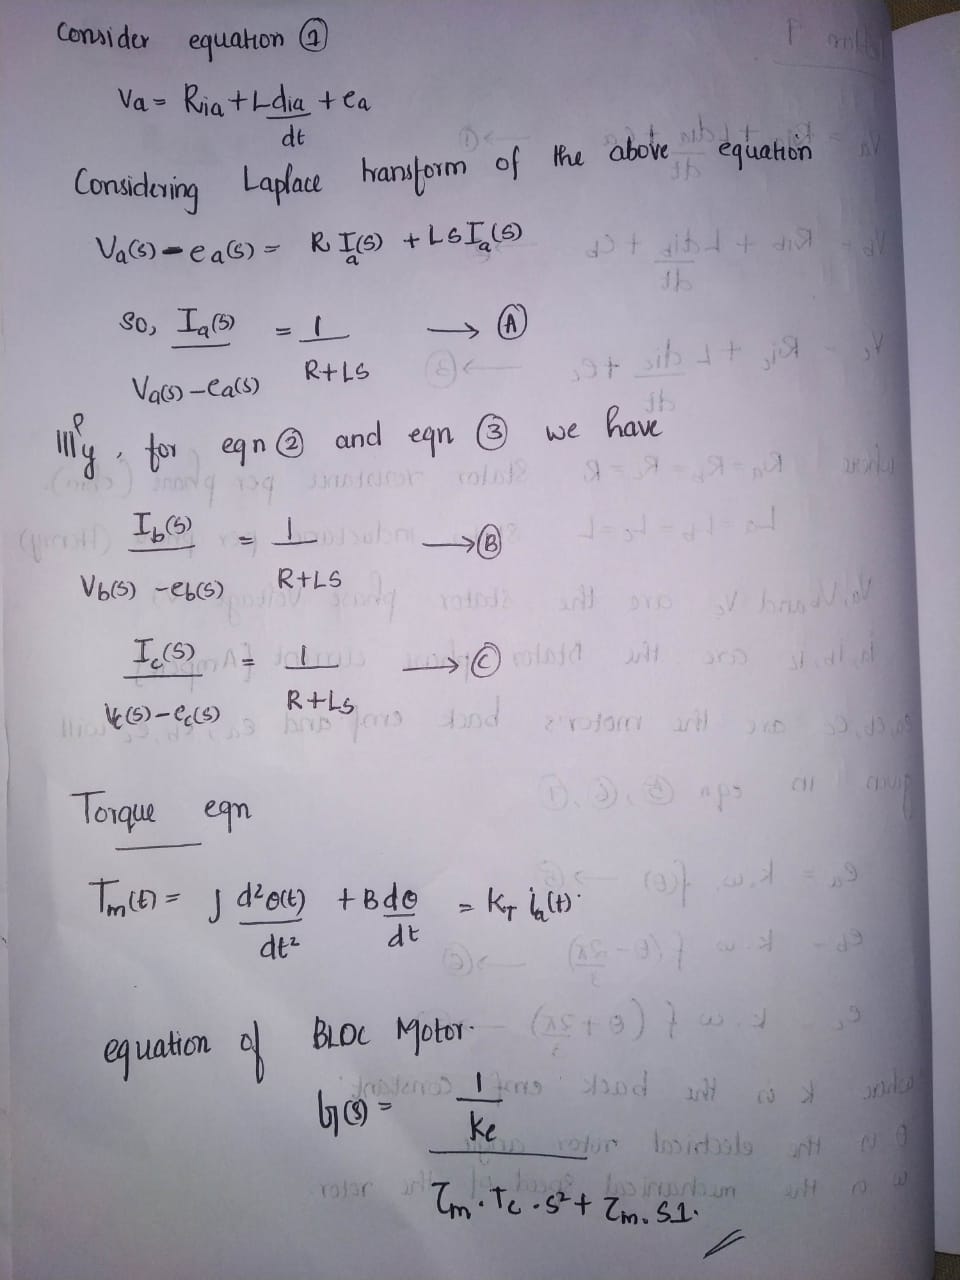 Consider equation ①
Va = Ria + L dia/dt + ea
Considering Laplace transform of the above equation
Va(s) - ea(s) = R Ia(s) + LS Ia(s)
So, Ia(s) / Va(s) - ea(s) = 1 / R+LS → Ⓐ
IIIly, for eqn ② and eqn ③ we have
Ib(s) / Vb(s) - eb(s) = 1 / R+LS → Ⓑ
Ic(s) / Vc(s) - ec(s) = 1 / R+LS → Ⓒ
Torque eqn
Tm(t) = J d²θ(t)/dt² + B dθ/dt = KT ia(t).
equation of BLDC Motor.
G(s) = 1/Ke / τm . Tc . s² + τm . S1.